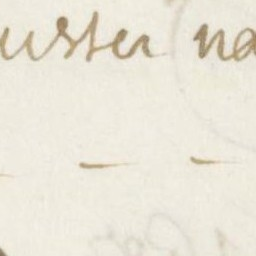 uster na
- - -